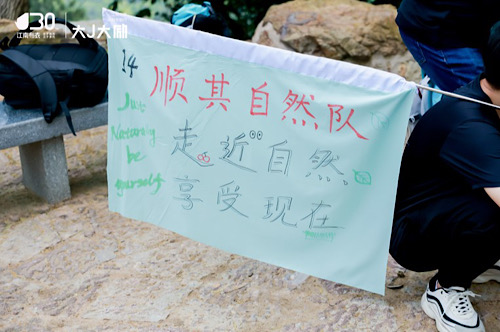 30
江南布衣
大J大湖
14
顺其自然队
Just
Naturally
be
yourself
走近自然
享受现在